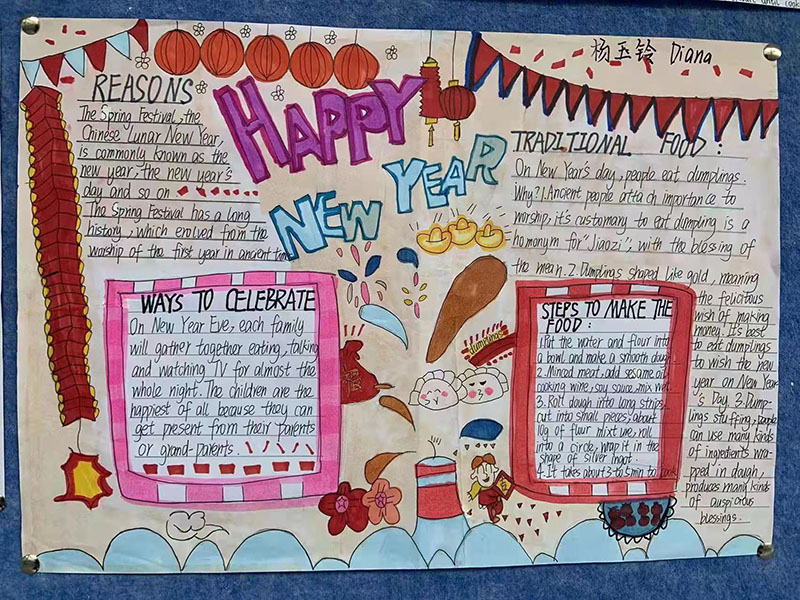 杨玉铃 Diana
HAPPY
NEW YEAR
REASONS
The Spring Festival, the
Chinese Lunar New Year,
is commonly known as the
new year, the new year's
day and so on
The Spring Festival has a long
history, which evolved from the
worship of the first year in ancient time
WAYS TO CELEBRATE
On New Year Eve, each family
will gather together eating, talking
and watching TV for almost the
whole night. The children are the
happiest of all because they can
get present from their parents
or grand-parents.
TRADITIONAL FOOD:
On New Year's day, people eat dumplings.
Why? 1. Ancient people attach importance to
worship, it's customary to eat dumpling is a
homonym for "Jiaozi", with the blessing of
the mean. 2. Dumplings shaped like gold, meaning
the felicitous
wish of making
money. It's best
to eat dumplings
to wish the new
year on New Year
's Day. 3. Dump-
lings stuffing, people
can use many kinds
of ingredients wra-
pped in dough,
produces many kinds
of auspicious
blessings.
STEPS TO MAKE THE
FOOD:
1. Put the water and flour into
a bowl and make a smooth dough
2. Minced meat, add sesame oil,
cooking wine, soy sauce, mix well.
3. Roll dough into long strips,
cut into small pieces, about
10g of flour mixture, roll
into a circre, wrap it in the
shape of silver ingot
4. It takes about 3 to 5 min to cook
dumplings